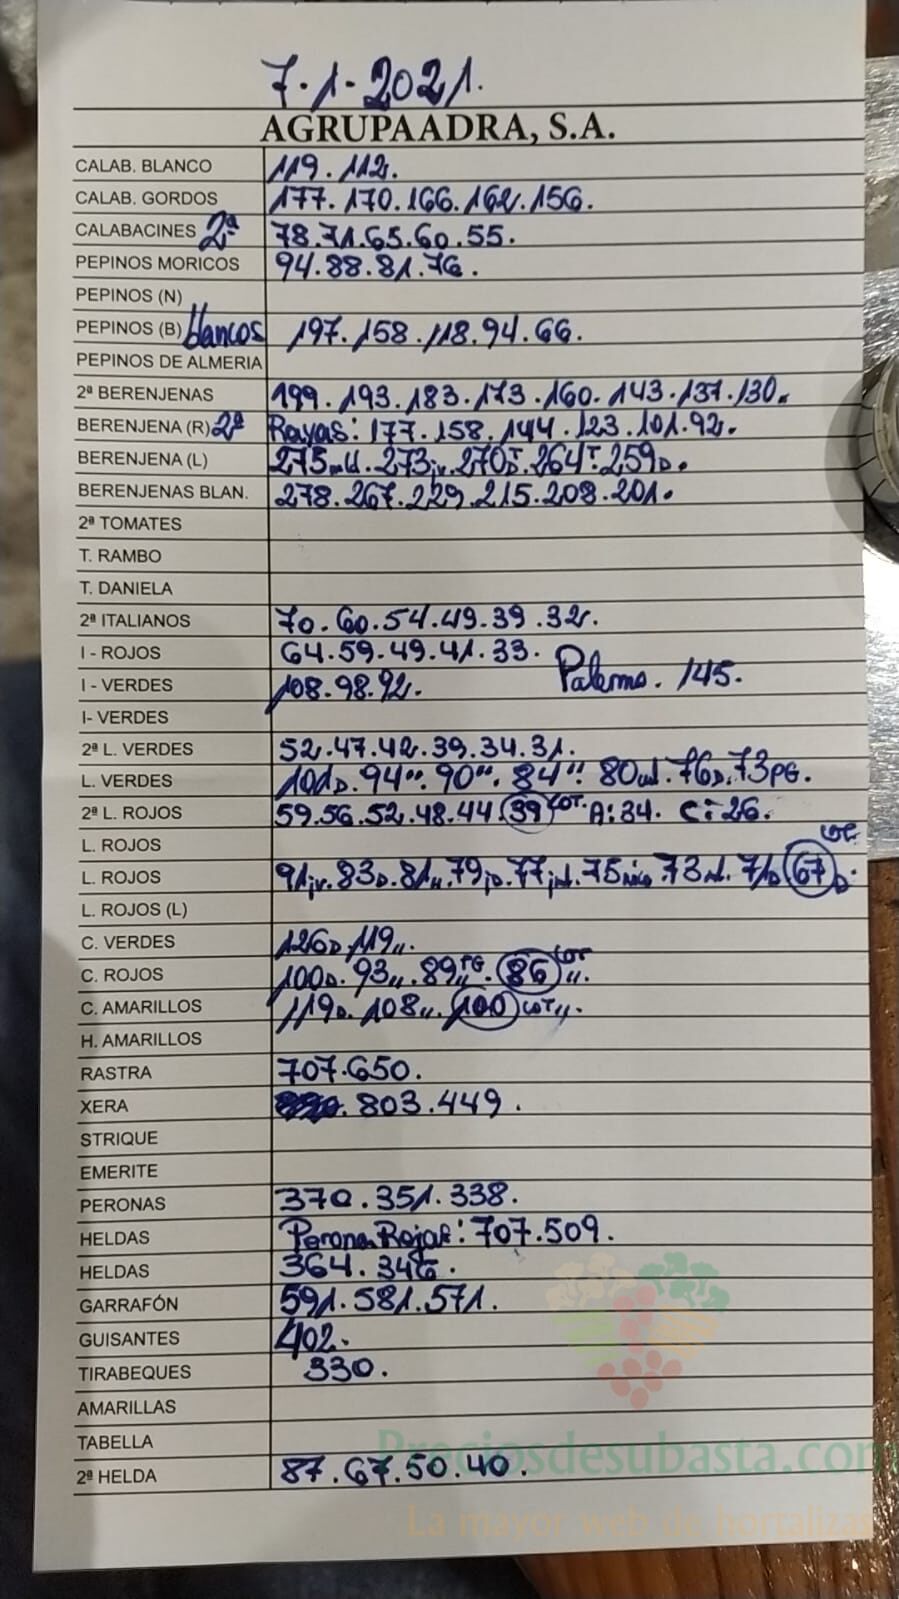 7.1-2021.
AGRUPAADRA, S.A.
CALAB. BLANCO 119.112.
CALAB. GORDOS 177.170.166.162.156.
CALABACINES 2ª 78.71.65.60.55.
PEPINOS MORICOS 94.88.81.76.
PEPINOS (N)
PEPINOS (B) blancos 197.158.118.94.66.
PEPINOS DE ALMERIA
2ª BERENJENAS 199.193.183.173.160.143.137.130.
BERENJENA (R) 2ª Rayas: 177.158.144.123.101.92.
BERENJENA (L) 275 273 270 264T. 259D.
BERENJENAS BLAN. 278.267.229.215.208.201.
2ª TOMATES
T. RAMBO
T. DANIELA
2ª ITALIANOS 70.60.54.49.39.32.
I - ROJOS 64.59.49.41.33.
I - VERDES 108.98.92. Palermo. 145.
I- VERDES
2ª L. VERDES 52.47.42.39.34.31.
L. VERDES 101D. 94". 90". 84". 80 76D. 73PG.
2ª L. ROJOS 59.56.52.48.44.39 COT. A:34. C:26.
L. ROJOS
L. ROJOS 91 83D. 81". 79 77 75 73 71D 67 D. COT.
L. ROJOS (L)
C. VERDES 126D. 119".
C. ROJOS 100D. 93". 89" PG. 86 COT ".
C. AMARILLOS 119D. 108". 100 COT ".
H. AMARILLOS
RASTRA 707.650.
XERA 803.449.
STRIQUE
EMERITE
PERONAS 370.351.338.
HELDAS Perona Rojas: 707.509.
HELDAS 364.346.
GARRAFÓN 591.581.571.
GUISANTES 402.
TIRABEQUES 330.
AMARILLAS
TABELLA
2ª HELDA 87.67.50.40.
Preciosdesubasta.com
La mayor web de hortalizas